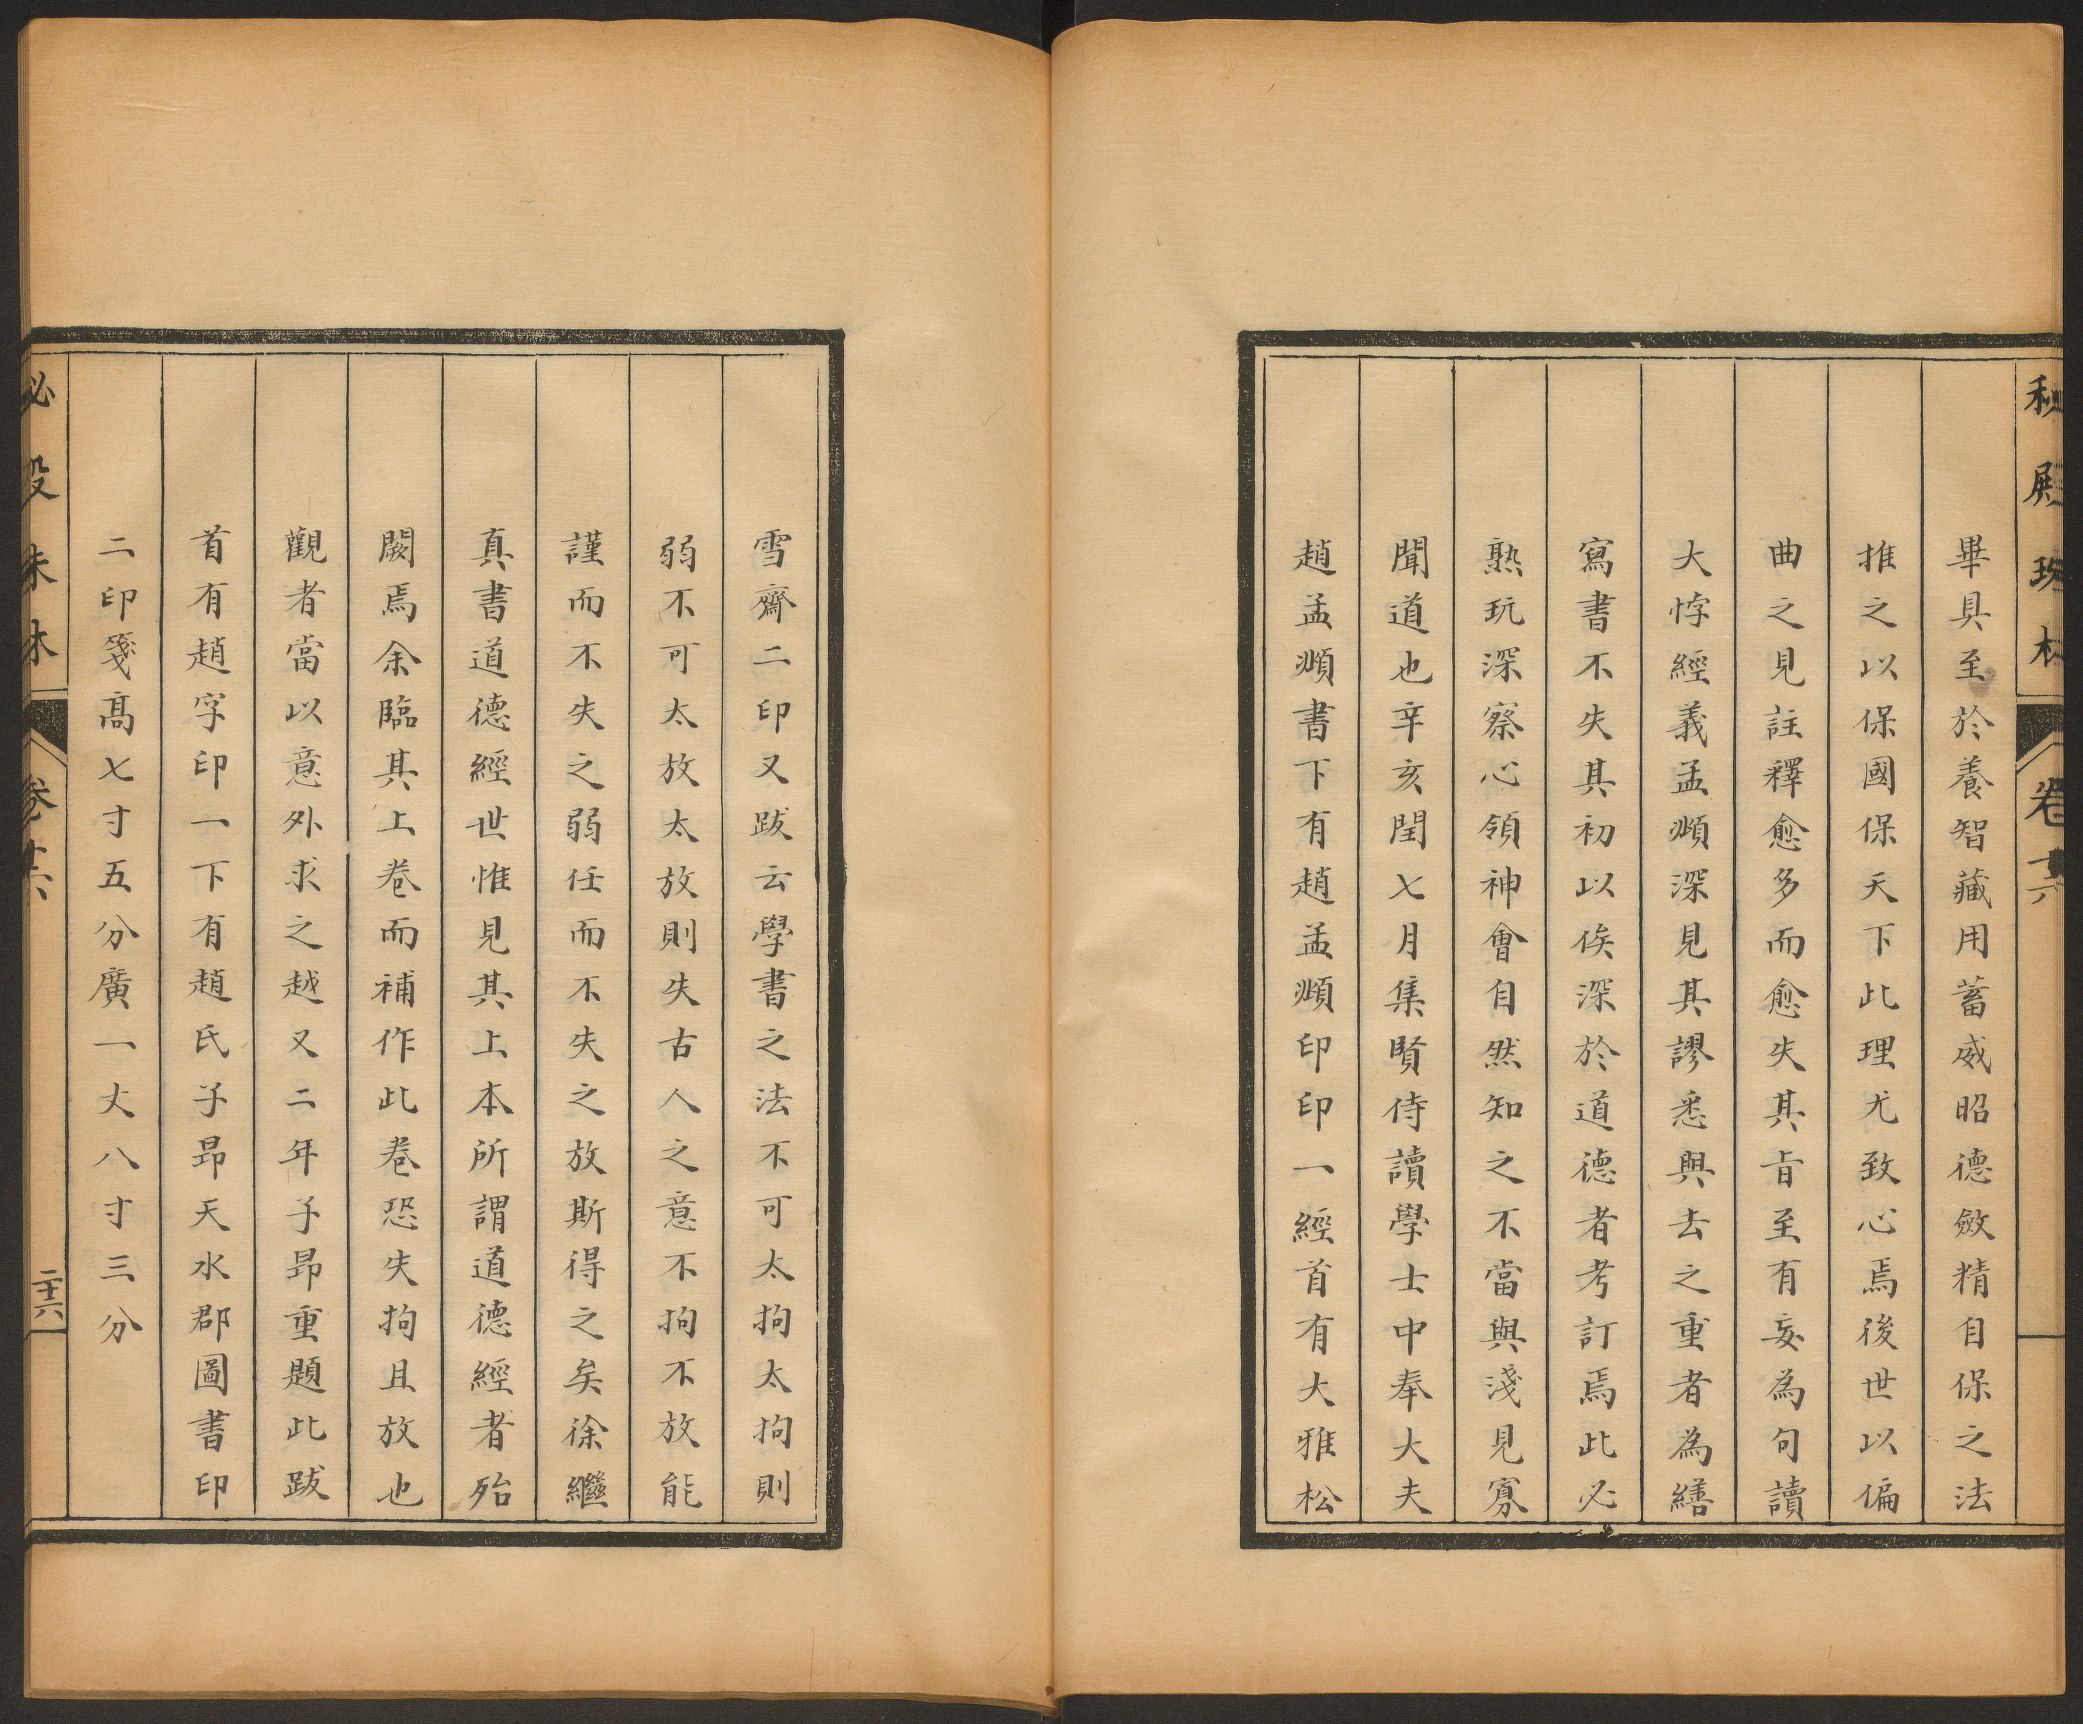 秘殿珠林 卷十六
畢具至於養智藏用蓄威昭德斂精自保之法
推之以保國保天下此理尤致心焉後世以偏
曲之見註釋愈多而愈失其旨至有妄為句讀
大悖經義孟頫深見其謬悉與去之重者為繕
寫書不失其初以俟深於道德者考訂焉此必
熟玩深察心領神會自然知之不當與淺見寡
聞道也辛亥閏七月集賢侍讀學士中奉大夫
趙孟頫書下有趙孟頫印印一經首有大雅松
雪齋二印又跋云學書之法不可太拘太拘則
弱不可太放太放則失古人之意不拘不放能
謹而不失之弱任而不失之放斯得之矣徐繼
真書道德經世惟見其上本所謂道德經者殆
闕焉余臨其上卷而補作此卷恐失拘且放也
觀者當以意外求之越又二年子昂重題此跋
首有趙字印一下有趙氏子昂天水郡圖書印
二印箋高七寸五分廣一丈八寸三分
秘殿珠林 卷十六 二十六